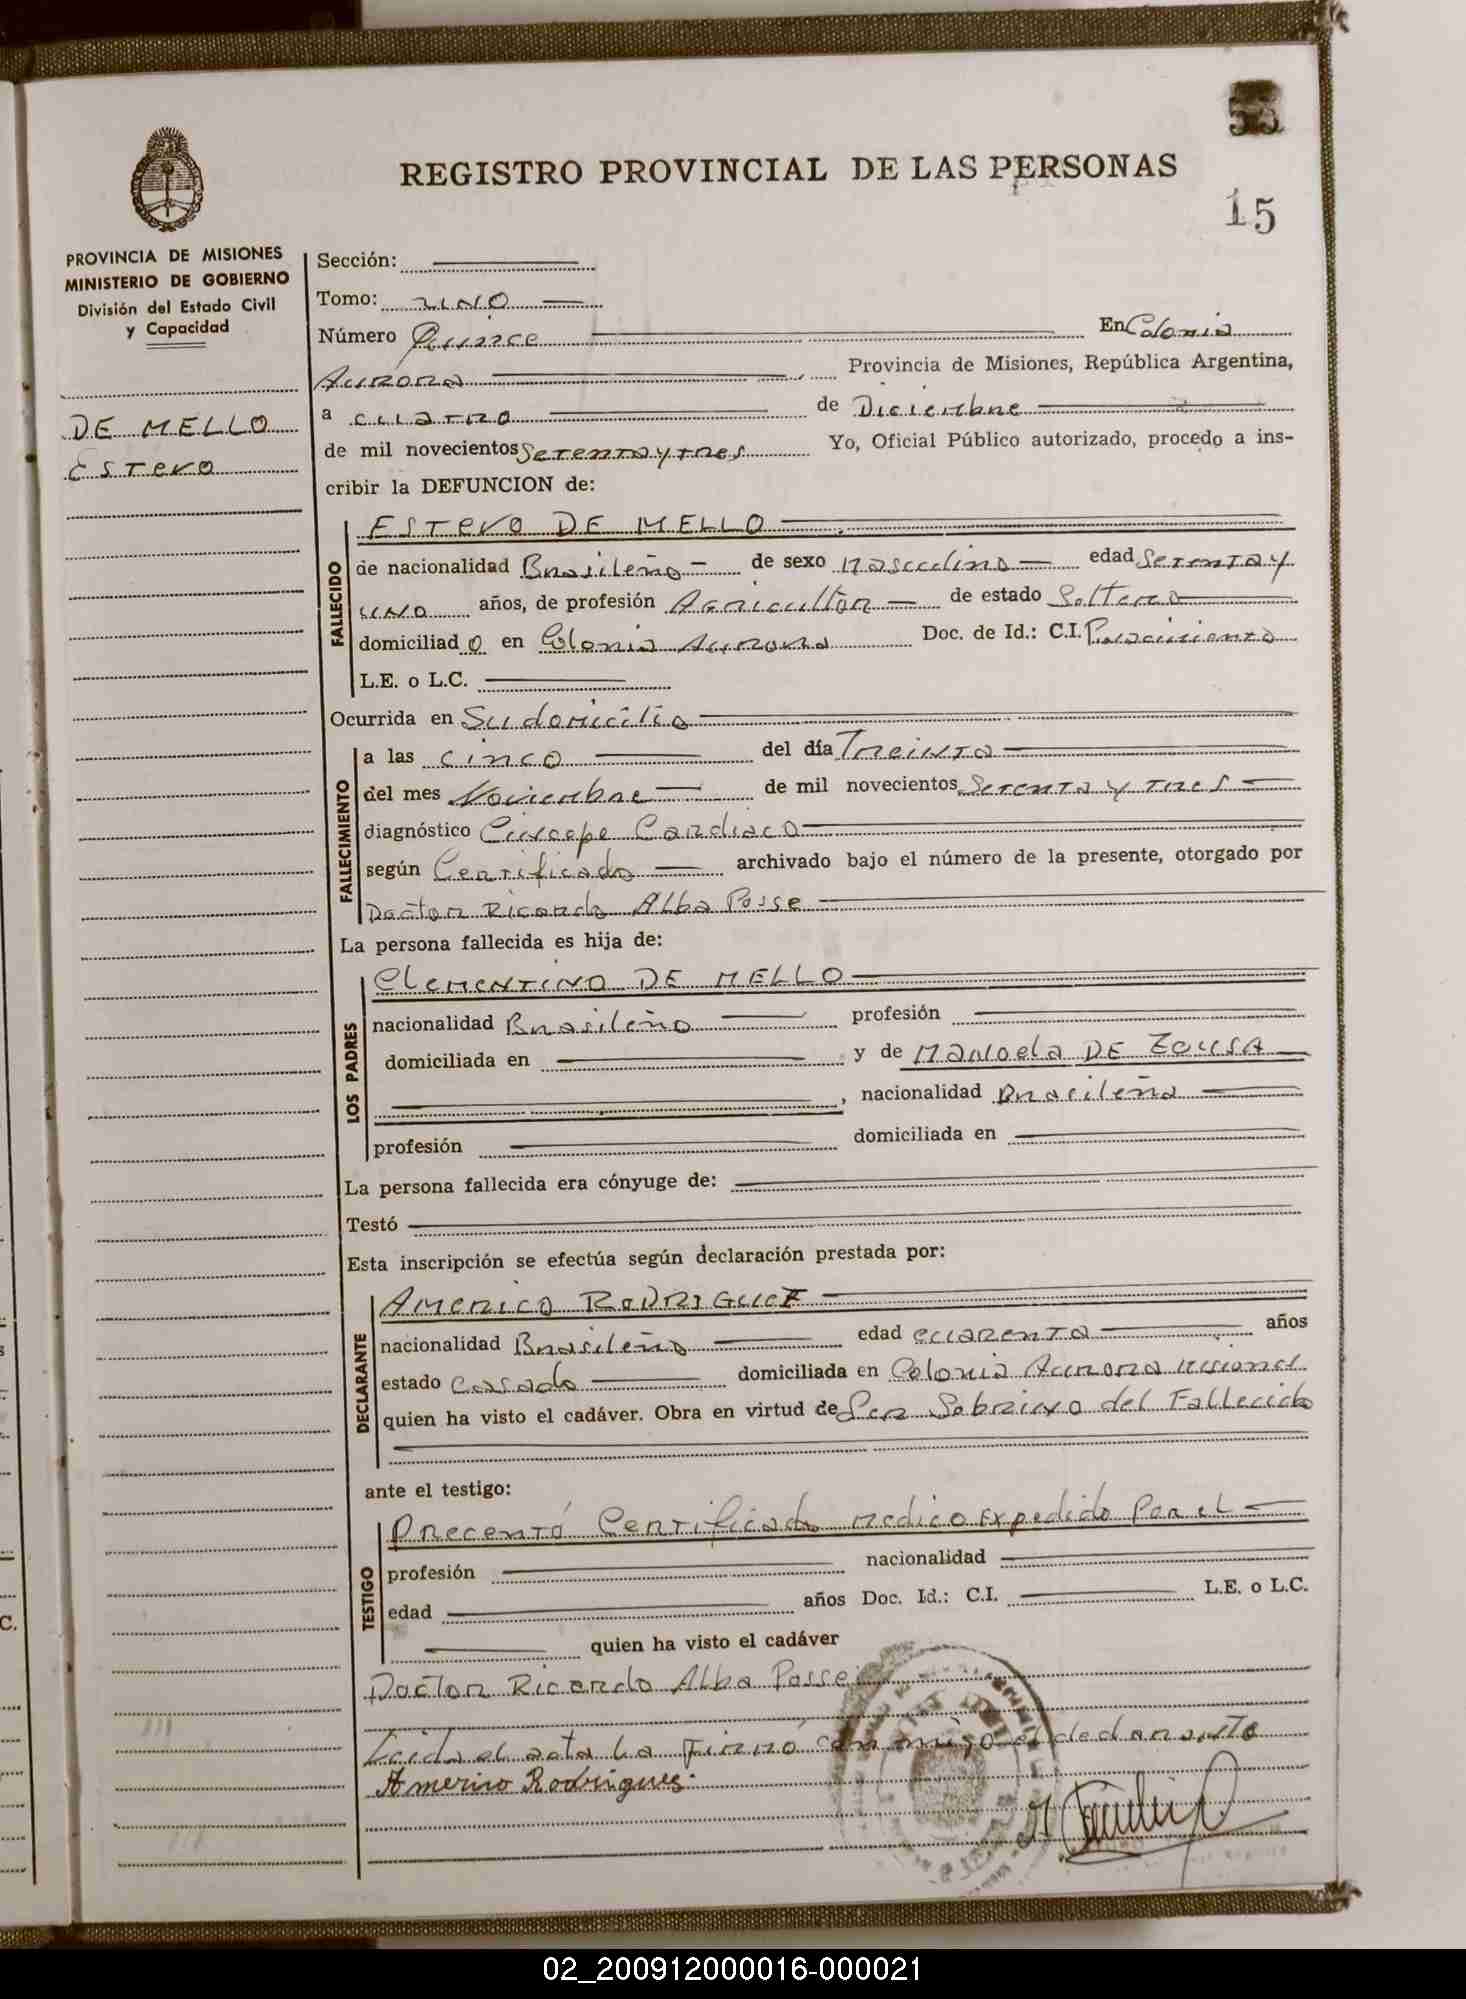 55
REGISTRO PROVINCIAL DE LAS PERSONAS
15
PROVINCIA DE MISIONES
MINISTERIO DE GOBIERNO
División del Estado Civil
y Capacidad
DE MELLO
Estevo
Sección:
Tomo: uno
Número Quince En Colonia
Aurora Provincia de Misiones, República Argentina,
a cuatro de Diciembre
de mil novecientos Setenta y tres Yo, Oficial Público autorizado, procedo a ins-
cribir la DEFUNCION de:
FALLECIDO
ESTEVO DE MELLO
de nacionalidad Brasileño de sexo Masculino edad Setenta y
uno años, de profesión Agricultor de estado Soltero
domiciliado en Colonia Aurora Doc. de Id.: C.I.
L.E. o L.C.
Ocurrida en Su domicilio
FALLECIMIENTO
a las cinco del día Treinta
del mes Noviembre de mil novecientos Setenta y tres
diagnóstico Cardiaco
según Certificado archivado bajo el número de la presente, otorgado por
Doctor Ricardo Alba Posse
La persona fallecida es hija de:
LOS PADRES
Clementino DE MELLO
nacionalidad Brasileño profesión
domiciliada en y de Manoela DE ZOUSA
, nacionalidad Brasileña
profesión domiciliada en
La persona fallecida era cónyuge de:
Testó
Esta inscripción se efectúa según declaración prestada por:
DECLARANTE
AMERICO RODRIGUEZ
nacionalidad Brasileño edad cuarenta años
estado Casado domiciliada en Colonia Aurora Misiones
quien ha visto el cadáver. Obra en virtud de Ser Sobrino del Fallecido
ante el testigo:
TESTIGO
Precentó Certificado Medico Expedido Por el
profesión nacionalidad
edad años Doc. Id.: C.I. L.E. o L.C.
quien ha visto el cadáver
Doctor Ricardo Alba Posse
Leida el acta la Firmó con migo el declarante
Amerino Rodrigues
02_200912000016-000021